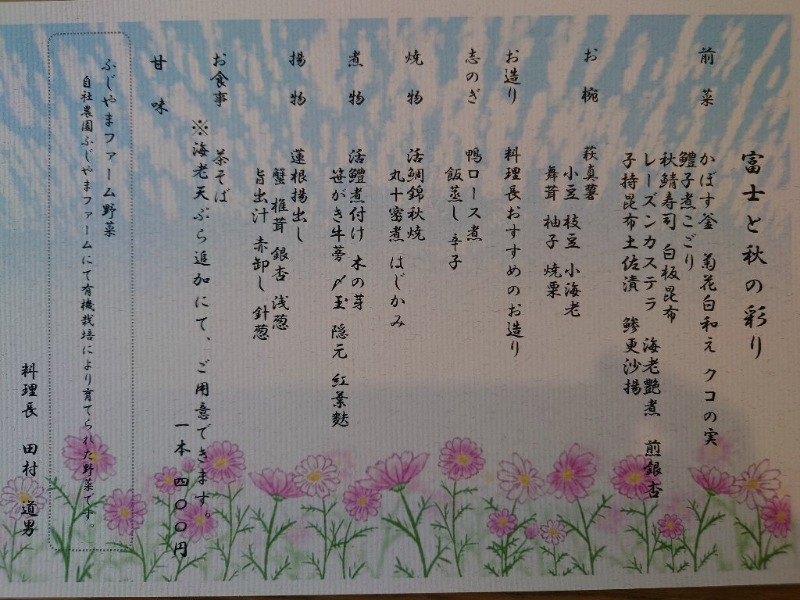 富士と秋の彩り
前菜 かばす釜 菊花白和え クコの実
鱧子煮こごり
秋鯖寿司 白板昆布
レーズンカステラ 海老艶煮 煎銀杏
子持昆布土佐漬 鯵更沙揚
お椀 萩真薯
小豆 枝豆 小海老
舞茸 柚子 焼栗
お造り 料理長おすすめのお造り
志のぎ 鴨ロース煮
飯蒸し 辛子
焼物 活鯛錦秋焼
丸十密煮 はじかみ
煮物 活鱧煮付け 木の芽
笹がき牛蒡 〆玉 隠元 紅葉麩
揚物 蓮根揚出し
蟹 椎茸 銀杏 浅葱
旨出汁 赤卸し 針葱
お食事 茶そば
※海老天ぷら追加にて、ご用意できます。
一本 四〇〇円
甘味
ふじやまファーム野菜
自社農園ふじやまファームにて有機栽培により育てられた野菜です。
料理長 田村 道男